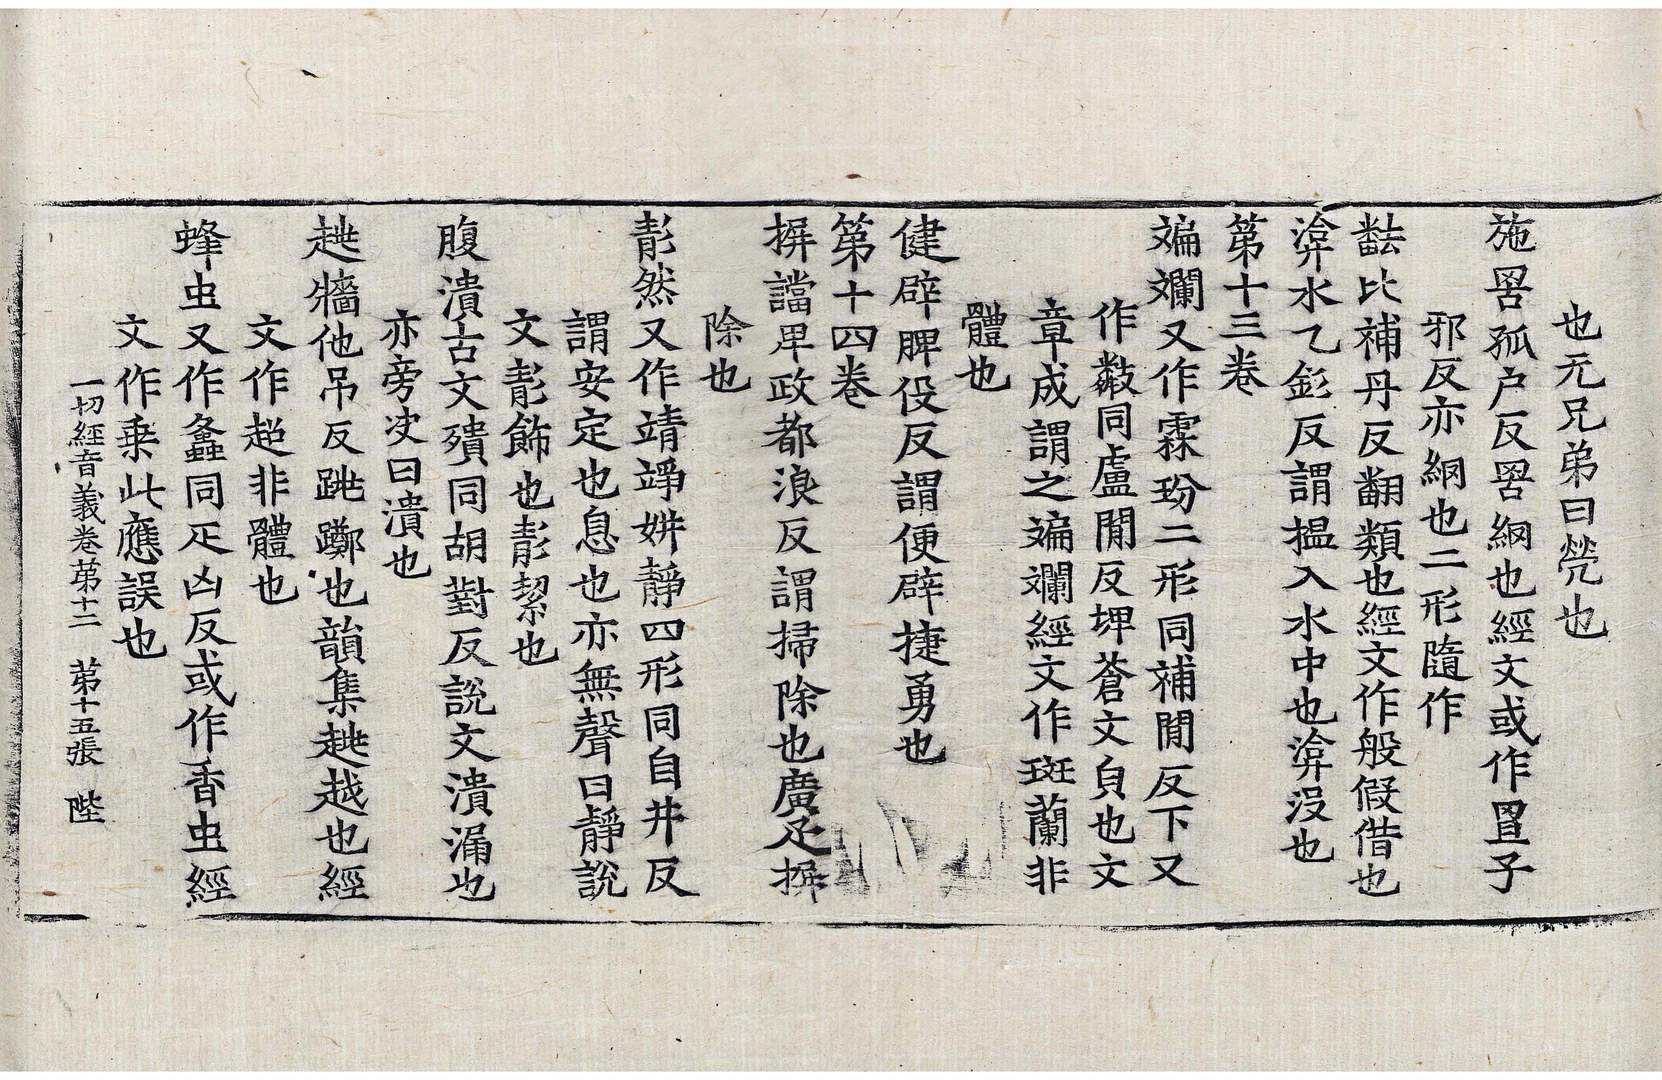 也元兄弟曰焭也
施罟孤户反罟網也經文或作罝子
邪反亦網也二形隨作
比補丹反翻類也經文作般假借也
渰水乙彭反謂揾入水中也渰沒也
第十三卷
斒斕又作霖玢二形同補閒反下又
作同盧閒反埤蒼文貟也文
章成謂之斒斕經文作斑蘭非
體也
健辟脾役反謂便辟捷勇也
第十四卷
摒譡卑政都浪反謂掃除也廣疋摒
除也
彰然又作靖竫妌靜四形同自井反
謂安定也息也亦無聲曰靜説
文彰飾也彰絜也
腹潰古文殨同胡對反説文潰漏也
亦旁决曰潰也
趒牆他吊反跳躑也韻集趒越也經
文作超非體也
蜂虫又作螽同疋凶反或作香虫經
文作乗此應誤也
一切經音義卷第十二　第十五張　陛